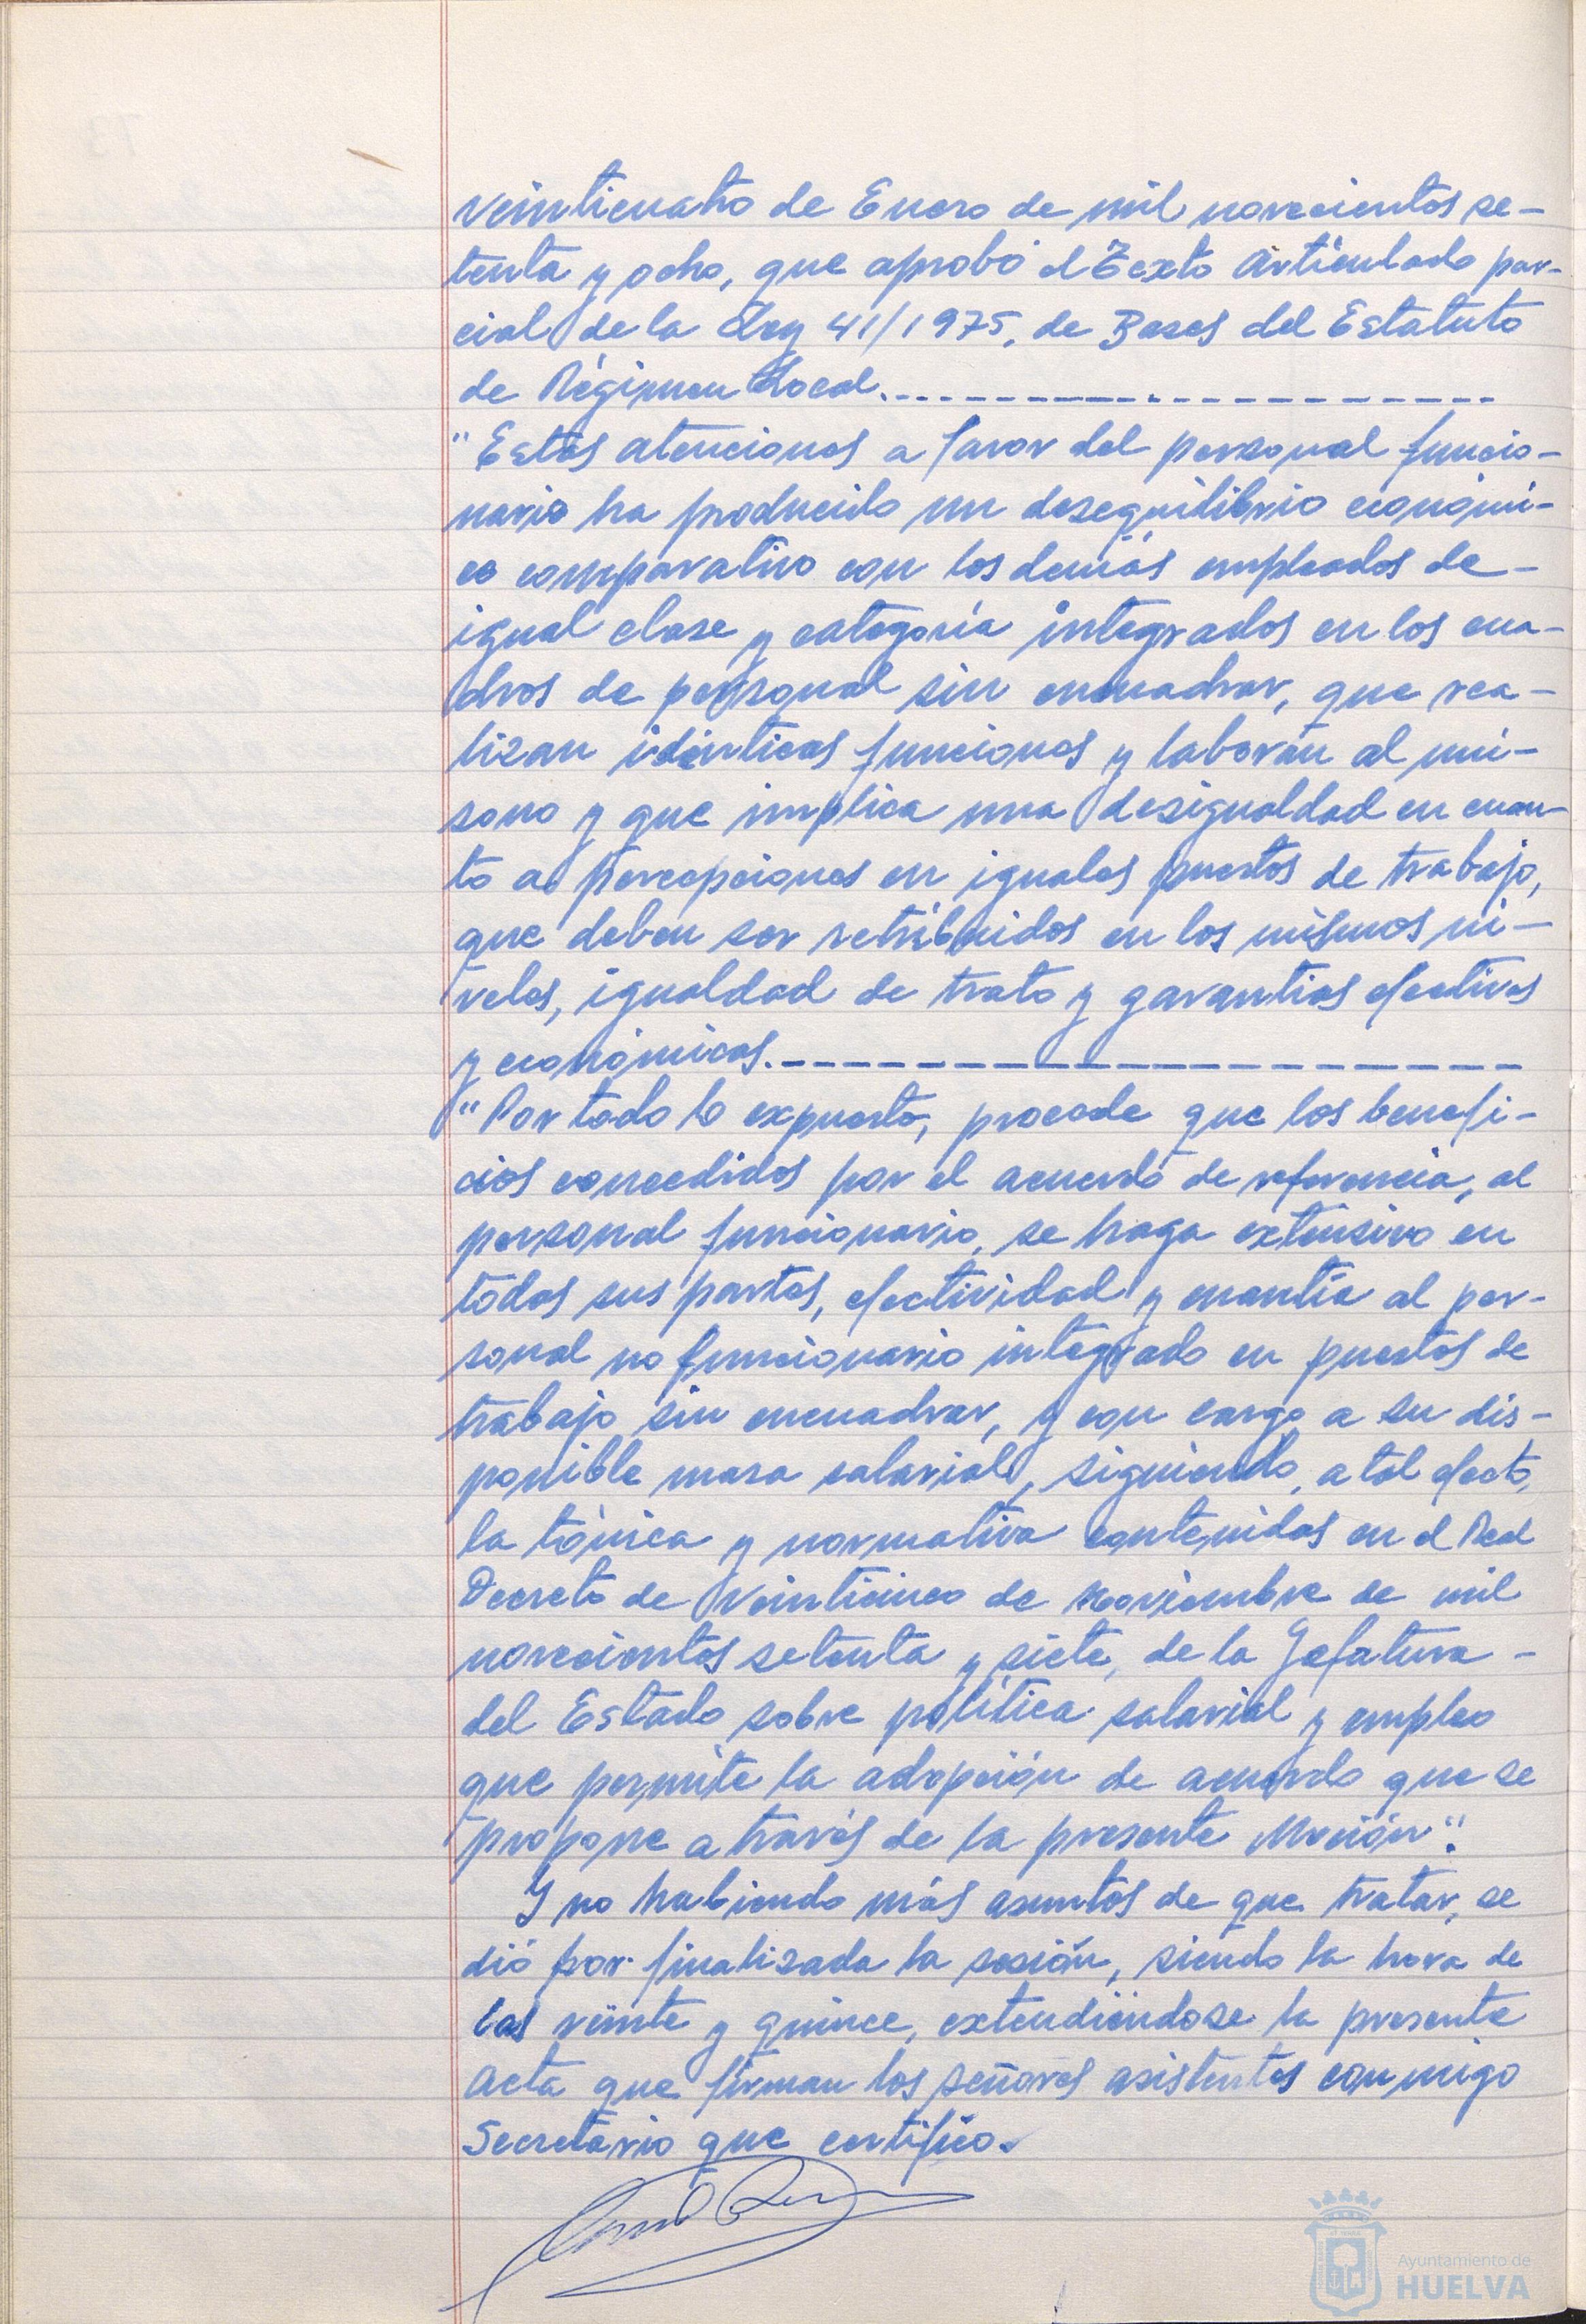 veinticuatro de Enero de mil novecientos se-
tenta y ocho, que aprobó el Texto Articulado par-
cial de la Ley 41/1975, de Bases del Estatuto
de Régimen Local.
"Estas atenciones a favor del personal funcio-
nario ha producido un desequilibrio económi-
co comparativo con los demás empleados de-
igual clase y categoría integrados en los cua-
dros de personal sin encuadrar, que rea-
lizan idénticas funciones y laboran al uní-
sono y que implica una desigualdad en cuan-
to a percepciones en iguales puestos de trabajo,
que deben ser retribuidos en los mismos ni-
veles, igualdad de trato y garantias efectivas
y económicas.
"Por todo lo expuesto, procede que los benefi-
cios concedidos por el acuerdo de referencia, al
personal funcionario, se haga extensivo en
todas sus partes, efectividad y cuantía al per-
sonal no funcionario integrado en puestos de
trabajo sin encuadrar, y con cargo a su dis-
ponible masa salarial, siguiendo, a tal efecto,
la tónica y normativa contenidas en el Real
Decreto de veinticinco de noviembre de mil
novecientos setenta y siete, de la Jefatura -
del Estado sobre política salarial y empleo
que permite la adopción de acuerdo que se
propone a través de la presente Moción".
Y no habiendo más asuntos de que tratar, se
dió por finalizada la sesión, siendo la hora de
las veinte y quince, extendiéndose la presente
acta que firman los señores asistentes conmigo
Secretario que certifico.
Ayuntamiento de
HUELVA